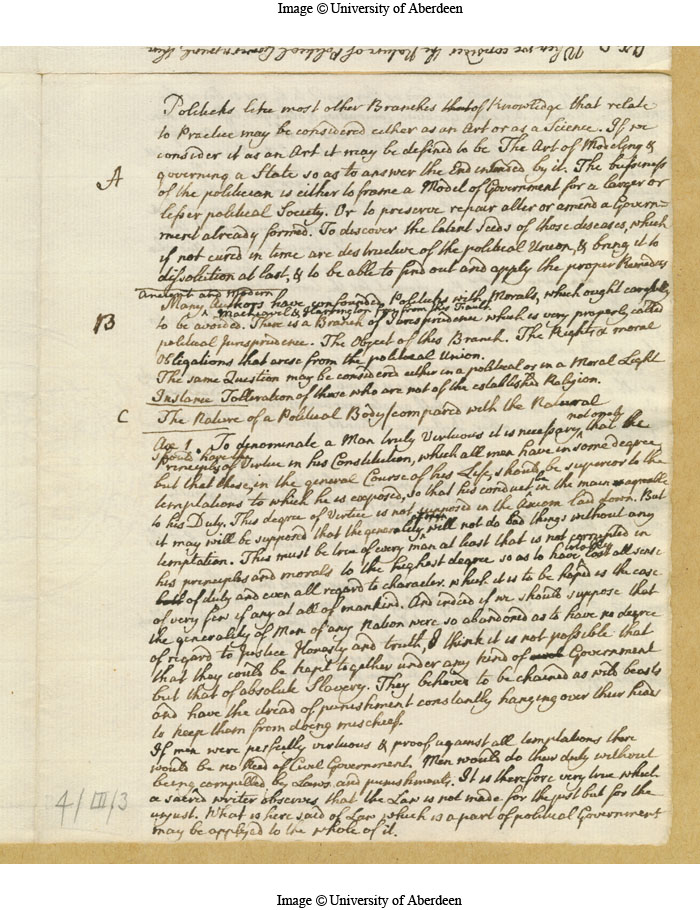 Image © University of Aberdeen
When we consider the Nature of Political Government, then
Politicks like most other Branches that of Knowledge that relate
to Practice may be considered either as an Art or as a Science. If we
consider it as an Art it may be defined to be The Art of Modeling &
governing a State so as to answer the End intended by it. The bussiness
A
of the politician is either to frame a Model of Government for a larger or
lesser political Society. Or to preserve repair alter or amend a Govern=
ment already formed. To discover the latent Seeds of those diseases, which
if not cured in time are destructive of the political Union, & bring it to
dissolution at last, & to be able to find out and apply the proper Remedies
ancient and Modern
Many Authors have confounded Politicks with Morals, which ought carefully
Machiavel & Harrington free from this Fault
B
to be avoided. There is a Branch of Jurisprudence which is very properly called
political Jurisprudence. The Object of this Branch. The Rights & moral
Obligations that arise from the political Union.
The same Question may be considered either in a political or in a Moral Light
Instance Tolleration of those who are not of the established Religion.
C
The Nature of a Political Body compared with the Natural
not onely
Ax 1. To denominate a Man truly Virtuous it is necessary that he
should have the
Principles of Virtue in his Constitution, which all men have in some degree
but that these, in the general Course of his Life, should be superior to the
temptations to which he is exposed, so that his conduct in the main is agreable
to his Duty. This degree of Virtue is not supposed in the Axiom laid down. But
it may will be supposed that the generality will not do bad things without any
temptation. This must be true of every man at least that is not corrupted in
wholly
his principles and morals to the highest degree so as to have lost all sense
both of duty and even all regard to character. which it is to be hoped is the case
of very few if any at all of mankind. And indeed if we should suppose that
the generality of Men of any Nation were so abandoned as to have no degree
of regard to Justice Honesty and truth, I think it is not possible that
that they could be kept together under any kind of Government
but that of absolute Slavery. They behoved to be chained as wild beasts
and have the dread of punishment constantly hanging over their heads
to keep them from doing mischief.
If men were perfectly virtuous & proof against all temptations there
would be no Need of Civil Government. Men would do their duty without
being compelled by Laws and punishments. It is therefore very true which
a sacred writer observes, that the Law is not made for the just but for the
unjust. What is here said of Law which is a part of political Government
may be applyed to the whole of it.
4/III/3
Image © University of Aberdeen